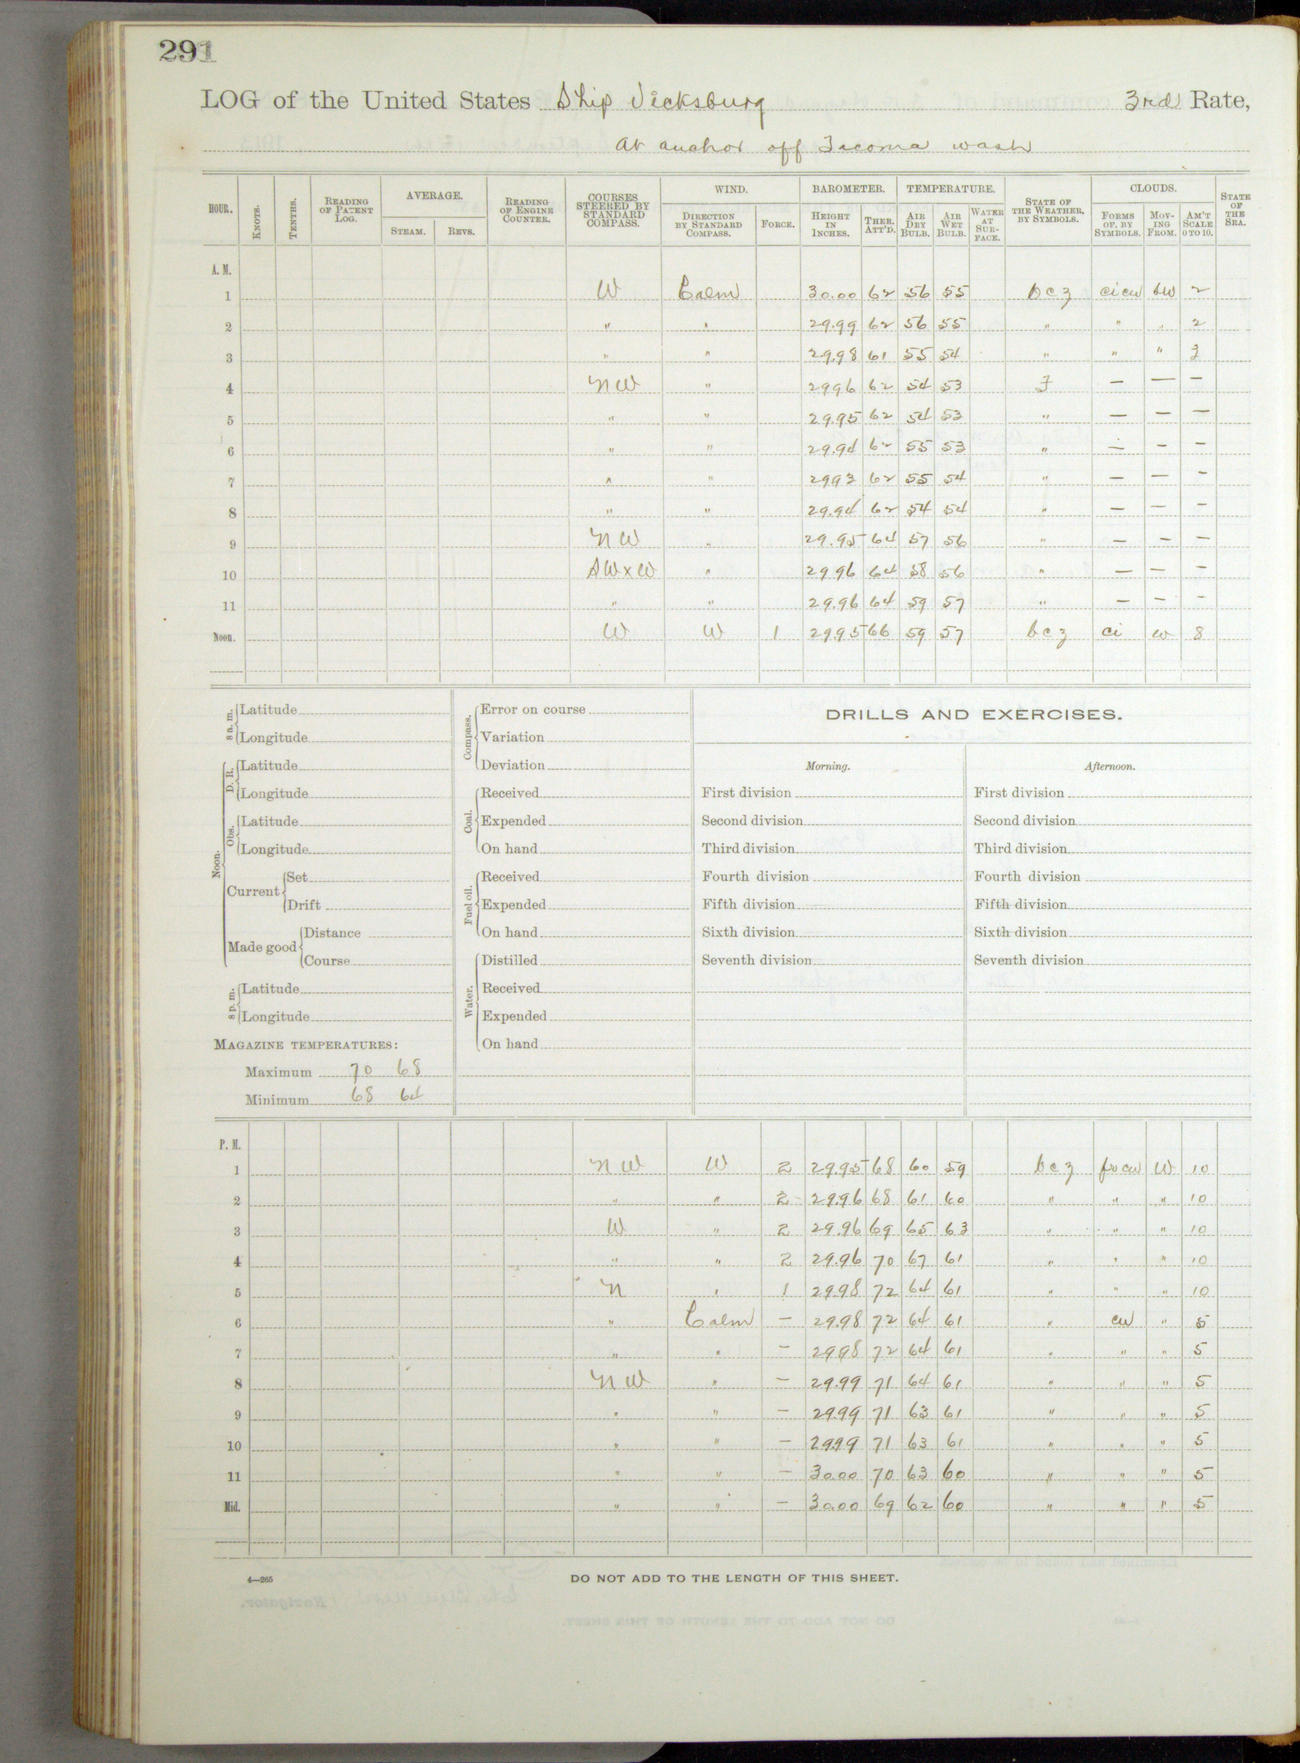 291
LOG of the United States Ship Vicksburg 3rd Rate,
At anchor off Tacoma wash
HOUR. KNOTS. TENTHS. READING OF PATENT LOG. AVERAGE. STEAM. REVS. READING OF ENGINE COUNTER. COURSES STEERED BY STANDARD COMPASS. WIND. DIRECTION BY STANDARD COMPASS. FORCE. BAROMETER. HEIGHT IN INCHES. THER. ATT'D. TEMPERATURE. AIR DRY BULB. AIR WET BULB. WATER AT SURFACE. STATE OF THE WEATHER, BY SYMBOLS. CLOUDS. FORMS OF, BY SYMBOLS. MOVING FROM. AM'T SCALE 0 TO 10. STATE OF THE SEA.
A. M.
1 W Calm 30.00 62 56 55 bcz cicu SW 2
2 " " 29.99 62 56 55 " " " 2
3 " " 29.98 61 55 54 " " " 3
4 NW " 29.96 62 54 53 F — — —
5 " " 29.95 62 54 53 " — — —
6 " " 29.94 62 55 53 " — — —
7 " " 29.93 62 55 54 " — — —
8 " " 29.94 62 54 54 " — — —
9 NW " 29.95 64 57 56 " — — —
10 SWxW " 29.96 64 58 56 " — — —
11 " " 29.96 64 59 57 " — — —
Noon. W W 1 29.95 66 59 57 bcz ci w 8
8 a. m. Latitude
Longitude
Noon. D. R. Latitude
Longitude
Obs. Latitude
Longitude
Current Set
Drift
Made good Distance
Course
8 p. m. Latitude
Longitude
MAGAZINE TEMPERATURES:
Maximum 70 68
Minimum 68 64
Compass. Error on course
Variation
Deviation
Coal. Received
Expended
On hand
Fuel oil. Received
Expended
On hand
Water. Distilled
Received
Expended
On hand
DRILLS AND EXERCISES.
Morning.
First division
Second division
Third division
Fourth division
Fifth division
Sixth division
Seventh division
Afternoon.
First division
Second division
Third division
Fourth division
Fifth division
Sixth division
Seventh division
P. M.
1 NW W 2 29.95 68 60 59 bcz frcu W 10
2 " " 2 29.96 68 61 60 " " " 10
3 W " 2 29.96 69 65 63 " " " 10
4 " " 2 29.96 70 67 61 " " " 10
5 N " 1 29.98 72 64 61 " " " 10
6 " Calm — 29.98 72 64 61 " cu " 5
7 " " — 29.98 72 64 61 " " " 5
8 NW " — 29.99 71 64 61 " " " 5
9 " " — 29.99 71 63 61 " " " 5
10 " " — 29.99 71 63 61 " " " 5
11 " " — 30.00 70 63 60 " " " 5
Mid. " " — 30.00 69 62 60 " " " 5
4—265 DO NOT ADD TO THE LENGTH OF THIS SHEET.